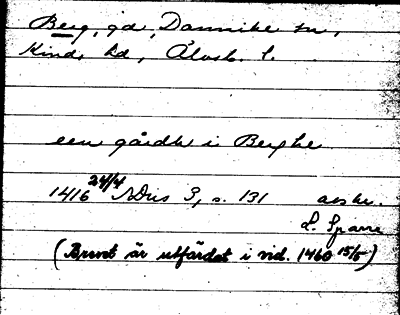 Berg, gd, Dannike sn,
Kinds hd, Älvsb. l.
een gårdh i Berghe
1416 24/4 NDis 3, s. 131 avskr.
L. Sparre
(Brevet är utfärdat i vid. 1460 15/5)